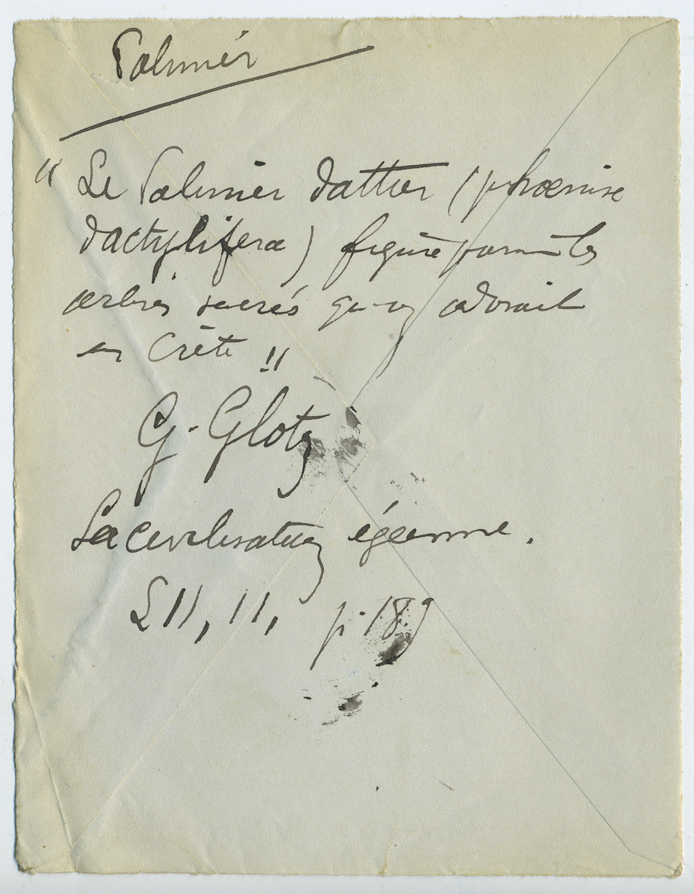 Palmier
" Le Palmier dattier (phoenix
dactylifera) figure parmi les
arbres sacrés qu'on adorait
en Crète "
G. Glotz
La civilisation égéenne.
L II, II, p. 189